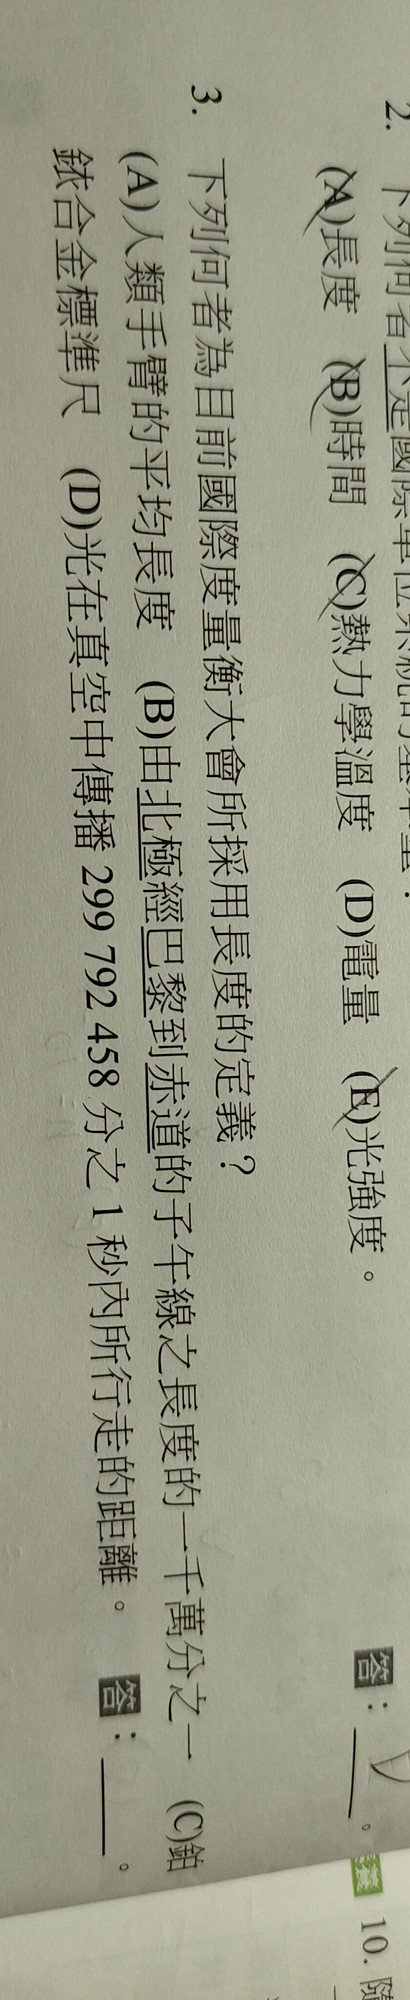 2. 下列何者不是國際單位系統的基本量？
(A)長度 (B)時間 (C)熱力學溫度 (D)電量 (E)光強度。
答：D。
3. 下列何者為目前國際度量衡大會所採用長度的定義？
(A)人類手臂的平均長度 (B)由北極經巴黎到赤道的子午線之長度的一千萬分之一 (C)鉑
銥合金標準尺 (D)光在真空中傳播 299 792 458 分之 1 秒內所行走的距離。
答：。
10.